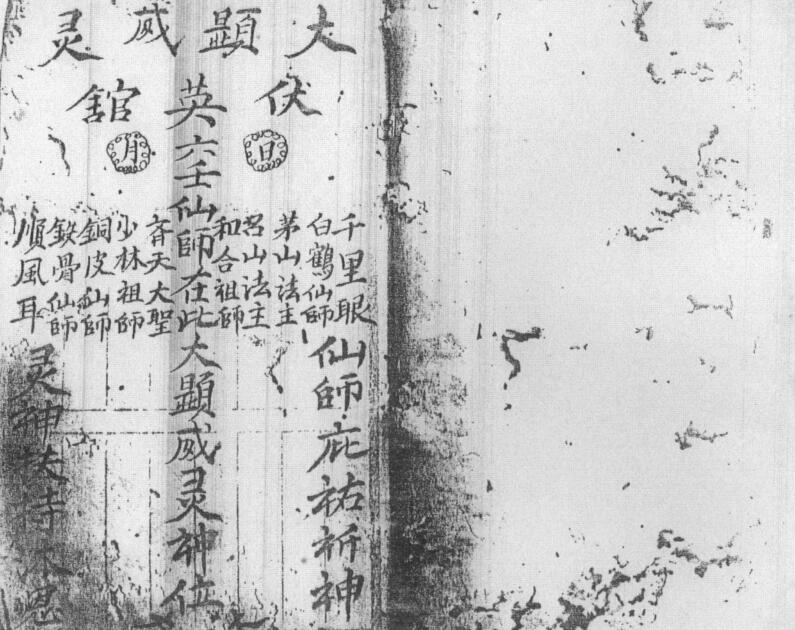 大顕威灵
伏英舘
日
月
千里眼
白鶴仙師
茅山法主
呂山法主
和合祖師
六壬仙師在此大顕威灵神位
斉天大聖
少林祖師
銅皮仙師
鉄骨仙師
順風耳
仙師庇祐祈神
灵神扶持沐恩